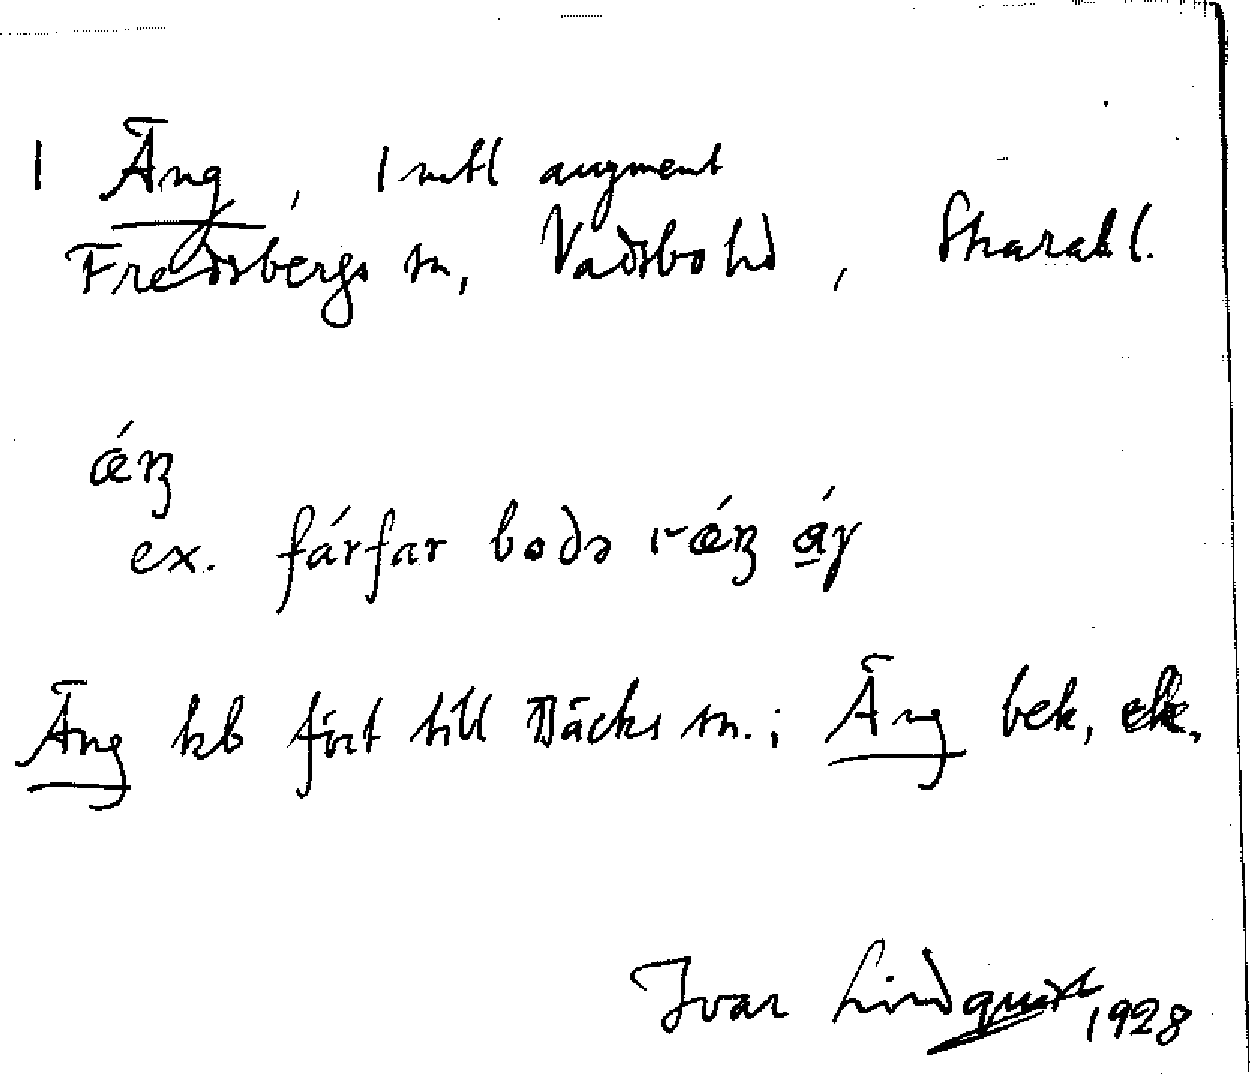 1 Äng, 1 mtl augment
Fredsbergs sn, Vadsbo hd, Skarab l.
ǽŋ
ex. fárfar bodə i-ǽŋ áɣ
Äng kb fört till Bäcks sn.; Äng bek, ek,
Ivar Lindquist 1928